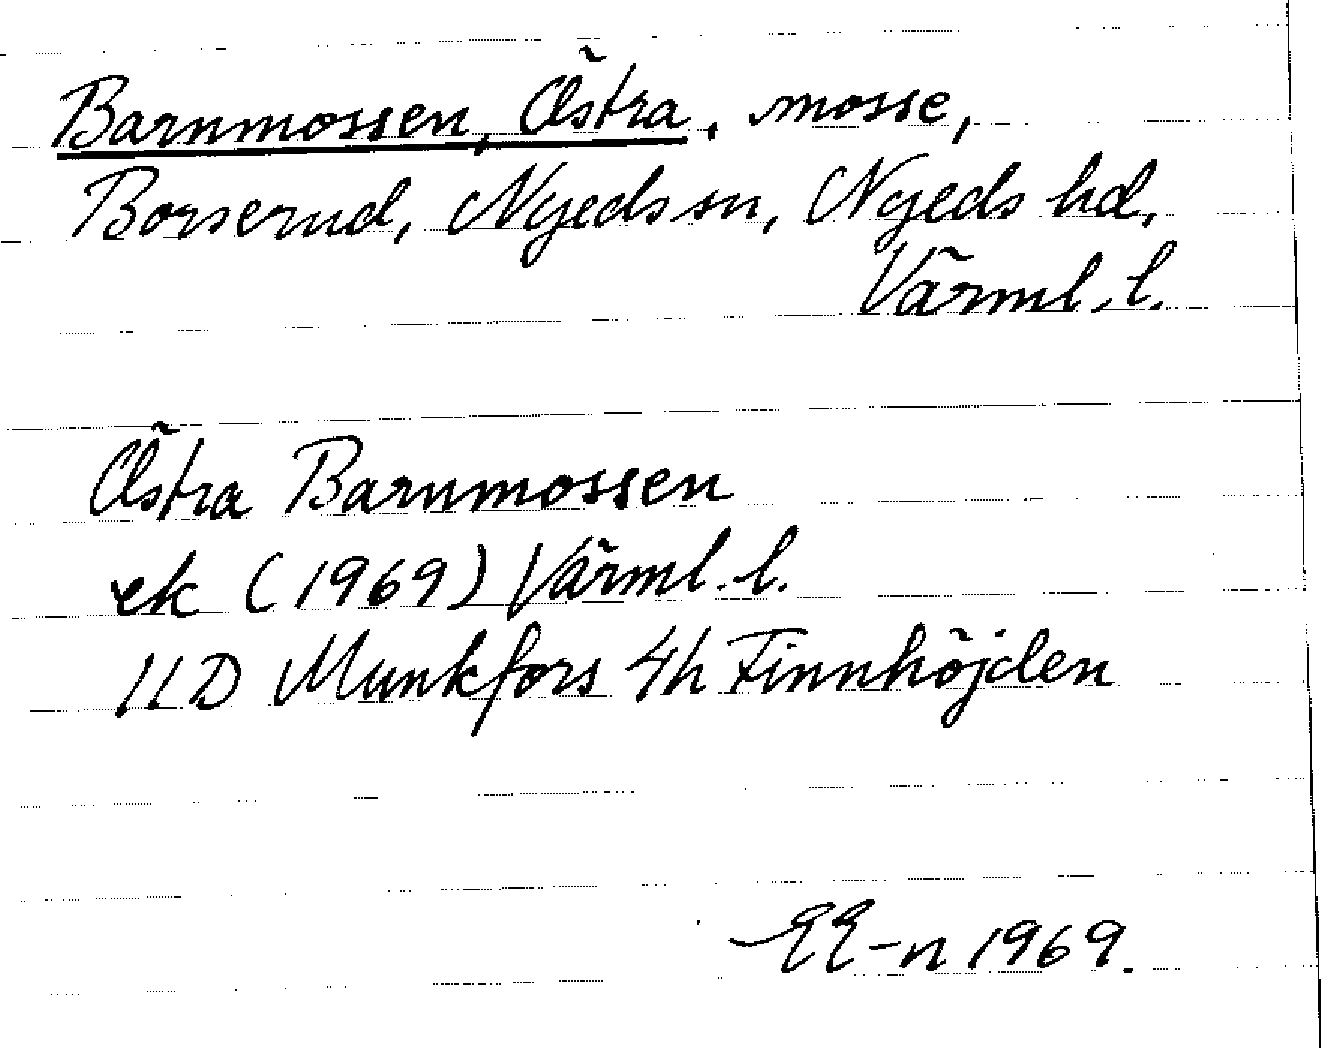 Barnmossen, Östra, mosse,
Borserud, Nyeds sn, Nyeds hd,
Värml. l.
Östra Barnmossen
ek (1969) Värml. l.
11D Munkfors 4h Finnhöjden
EE-n 1969.